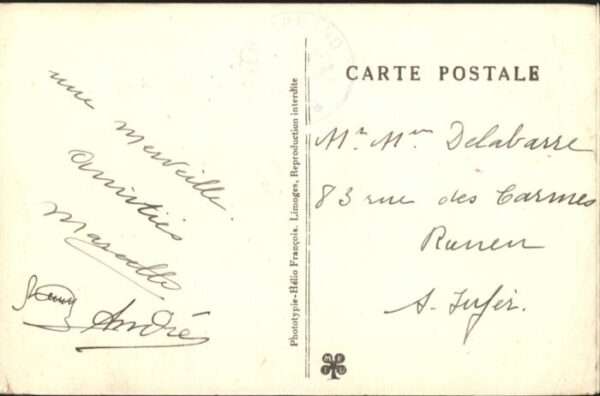 une
merveille.
Amitiés
Marcelle
André
Phototypie-Hélio François. Limoges, Reproduction interdite
CARTE POSTALE
Mr Mme Delabarre
83 rue des Carmes
Rouen
S. Infér.